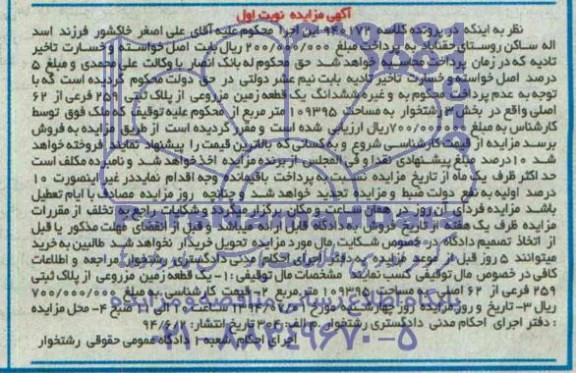 آگهی مزایده نوبت اول
نظر به اینکه در پرونده کلاسه ۹۴۰۱۷۲ این اجرا محکوم علیه آقای علی اصغر خاکشور فرزند اسد
اله ساکن روستای حقناباد به پرداخت مبلغ ۲۰۰/۰۰۰/۰۰۰ ریال بابت اصل خواسته و خسارت تاخیر
تادیه که در زمان پرداخت محاسبه خواهد شد حق محکوم له بانک انصار با وکالت علی محمدی و مبلغ ۵
درصد اصل خواسته و خسارت تاخیر تادیه بابت نیم عشر دولتی در حق دولت محکوم گردیده است که با
توجه به عدم پرداخت محکوم به و غیره ششدانگ یک قطعه زمین مزروعی از پلاک ثبتی ۲۵۹ فرعی از ۶۲
اصلی واقع در بخش ۳ رشتخوار به مساحت ۱۰۹۳۹۵ متر مربع از محکوم علیه توقیف که ملک فوق توسط
کارشناس به مبلغ ۷۰۰/۰۰۰/۰۰۰ ریال ارزیابی شده است و مقرر گردیده است از طریق مزایده به فروش
برسد مزایده از قیمت کارشناسی شروع و به کسانی که بالاترین قیمت را پیشنهاد نمایند فروخته خواهد
شد ۱۰ درصد مبلغ پیشنهادی نقدا و فی المجلس از برنده مزایده اخذ خواهد شد و نامبرده مکلف است
حداکثر ظرف یک ماه از تاریخ مزایده نسبت به پرداخت باقیمانده وجه اقدام نماید در غیر اینصورت ۱۰
درصد اولیه به نفع دولت ضبط و مزایده تجدید خواهد شد و چنانچه روز مزایده مصادف با ایام تعطیل
باشد مزایده فردای آن روز در همان ساعت و مکان برگزار میگردد و شکایات راجع به تخلف از مقررات
مزایده ظرف یک هفته از تاریخ فروش به دادگاه قابل ارائه میباشد و قبل از انقضای مهلت مذکور یا قبل
از اتخاذ تصمیم دادگاه در خصوص شکایت مال مورد مزایده تحویل خریدار نخواهد شد طالبین به خرید
میتوانند ۵ روز قبل از موعد مزایده به دفتر اجرای احکام مدنی دادگستری رشتخوار مراجعه و اطلاعات
کافی در خصوص مال توقیفی کسب نمایند مشخصات مال توقیفی :۱- یک قطعه زمین مزروعی از پلاک ثبتی
۲۵۹ فرعی از ۶۲ اصلی به مساحت ۱۰۹۳۹۵ متر مربع ۲- قیمت کارشناسی به مبلغ ۷۰۰/۰۰۰/۰۰۰
ریال ۳- تاریخ و روز مزایده روز چهارشنبه مورخ ۱۳۹۴/۰۷/۰۱ ساعت ۱۰ الی ۱۱ صبح ۴- محل مزایده
: دفتر اجرای احکام مدنی دادگستری رشتخوار .م الف: ۳۰۶ تاریخ انتشار: ۹۴/۶/۲
اجرای احکام شعبه ۱ دادگاه عمومی حقوقی رشتخوار
پایگاه اطلاع رسانی مناقصه و مزایده
۰۲۱-۸۸۳۴۹۶۷۰-۵